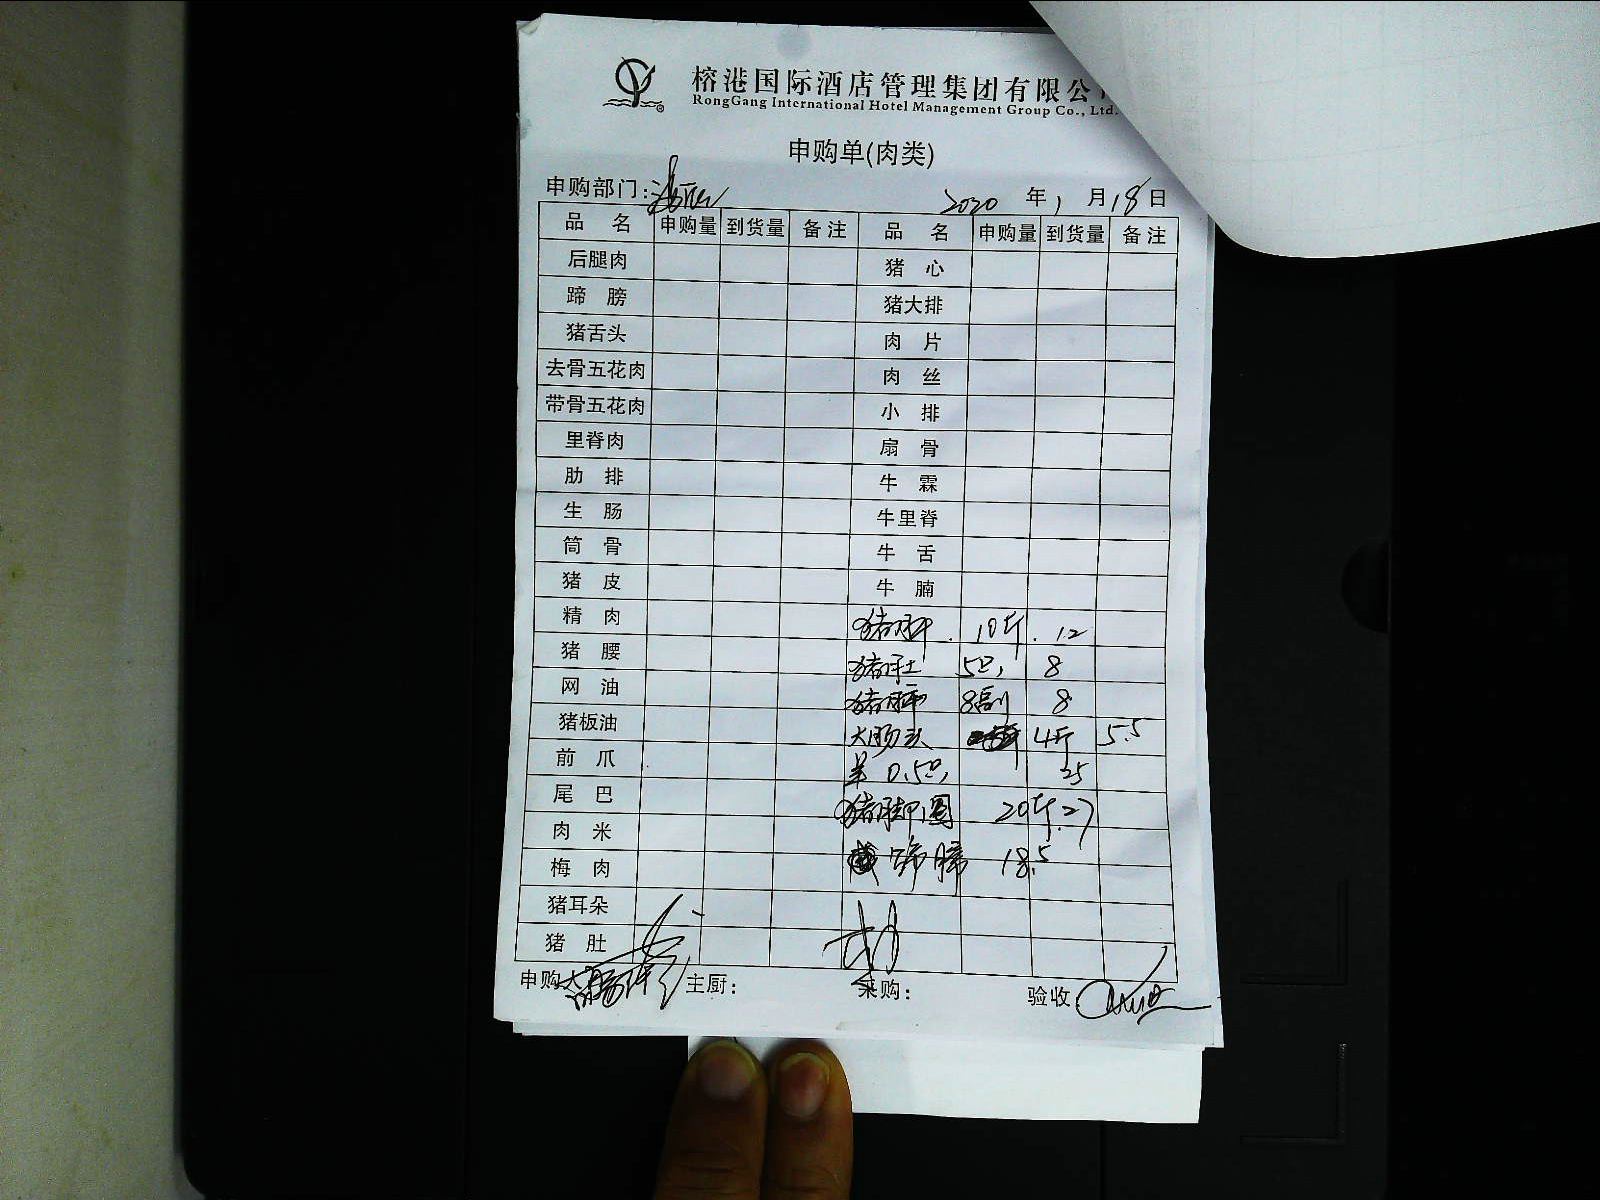 榕港国际酒店管理集团有限公
RongGang International Hotel Management Group Co., Ltd.
申购单(肉类)
申购部门:
2020 年 1 月 18 日
品 名 申购量 到货量 备注 品 名 申购量 到货量 备注
后腿肉 猪 心
蹄 膀 猪大排
猪舌头 肉 片
去骨五花肉 肉 丝
带骨五花肉 小 排
里脊肉 扇 骨
肋 排 牛 霖
生 肠 牛里脊
筒 骨 牛 舌
猪 皮 牛 腩
精 肉 猪肝 10斤 12
猪 腰 猪肚 5只 8
网 油 8副 8
猪板油 大肠头 4斤 5.5
前 爪 羊 0.5只 25
尾 巴 猪脚圆 20斤 27
肉 米 蹄膀 18.5
梅 肉
猪耳朵
猪 肚
申购 主厨: 采购: 验收: